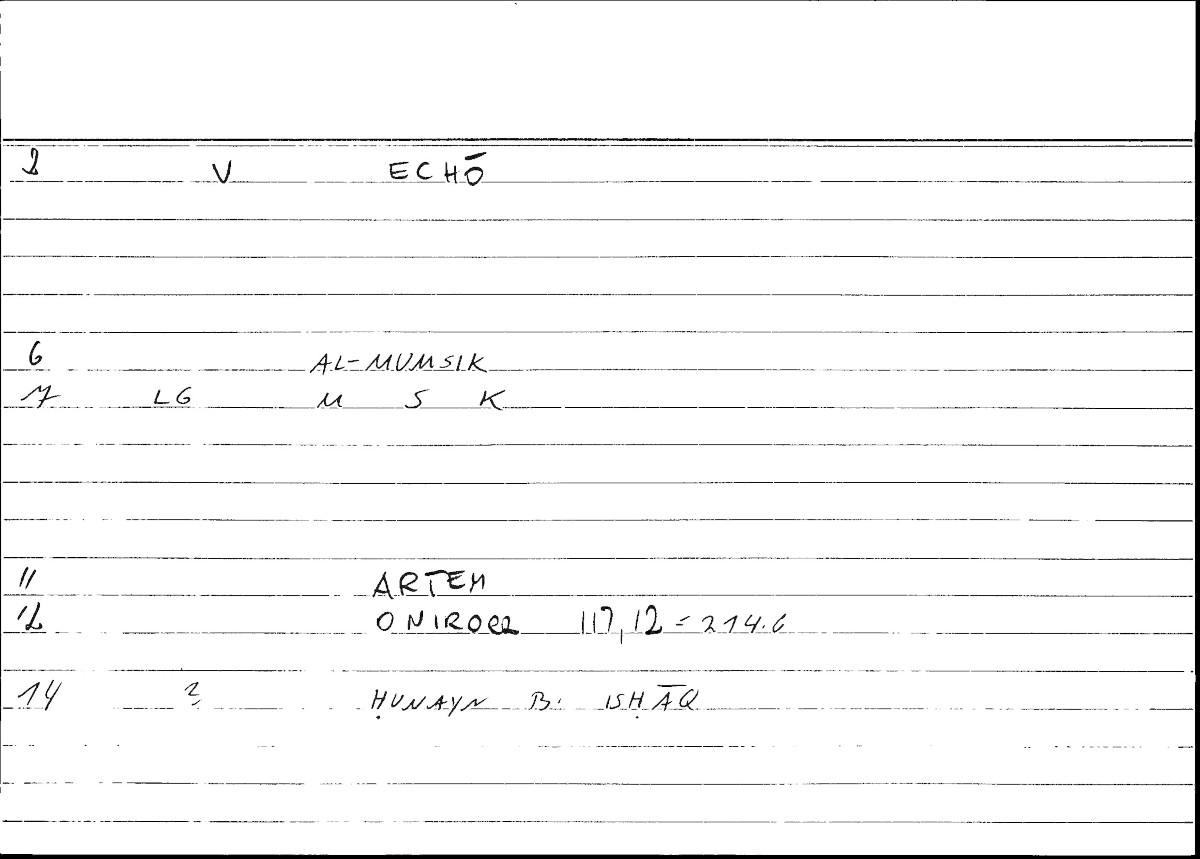 2 V ECHŌ
6 AL-MUMSIK
7 LG M S K
11 ARTEM
12 ONIROCR 117,12 = 214.6
14 2 ḤUNAYN B. ISḤĀQ